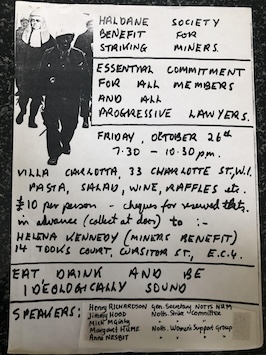 HALDANE SOCIETY
BENEFIT FOR
STRIKING MINERS.
ESSENTIAL COMMITMENT
FOR ALL MEMBERS
AND ALL
PROGRESSIVE LAWYERS.
FRIDAY, OCTOBER 26th
7.30 - 10.30 pm.
VILLA CARLOTTA, 33 CHARLOTTE ST, W.1.
PASTA, SALAD, WINE, RAFFLES etc.
£10 per person - cheques for reserved tkts.
in advance (collect at door) to :-
HELENA KENNEDY (MINERS BENEFIT)
14 TOOKS COURT, CURSITOR ST, E.C.4.
EAT DRINK AND BE
IDEOLOGICALLY SOUND
SPEAKERS: Henry RICHARDSON Gen. Secretary NOTTS NUM
Jimmy HOOD Notts. Strike Committee
Mick McGinty " "
Margaret HUME Notts. Women's Support Group
Anne NESBIT " "